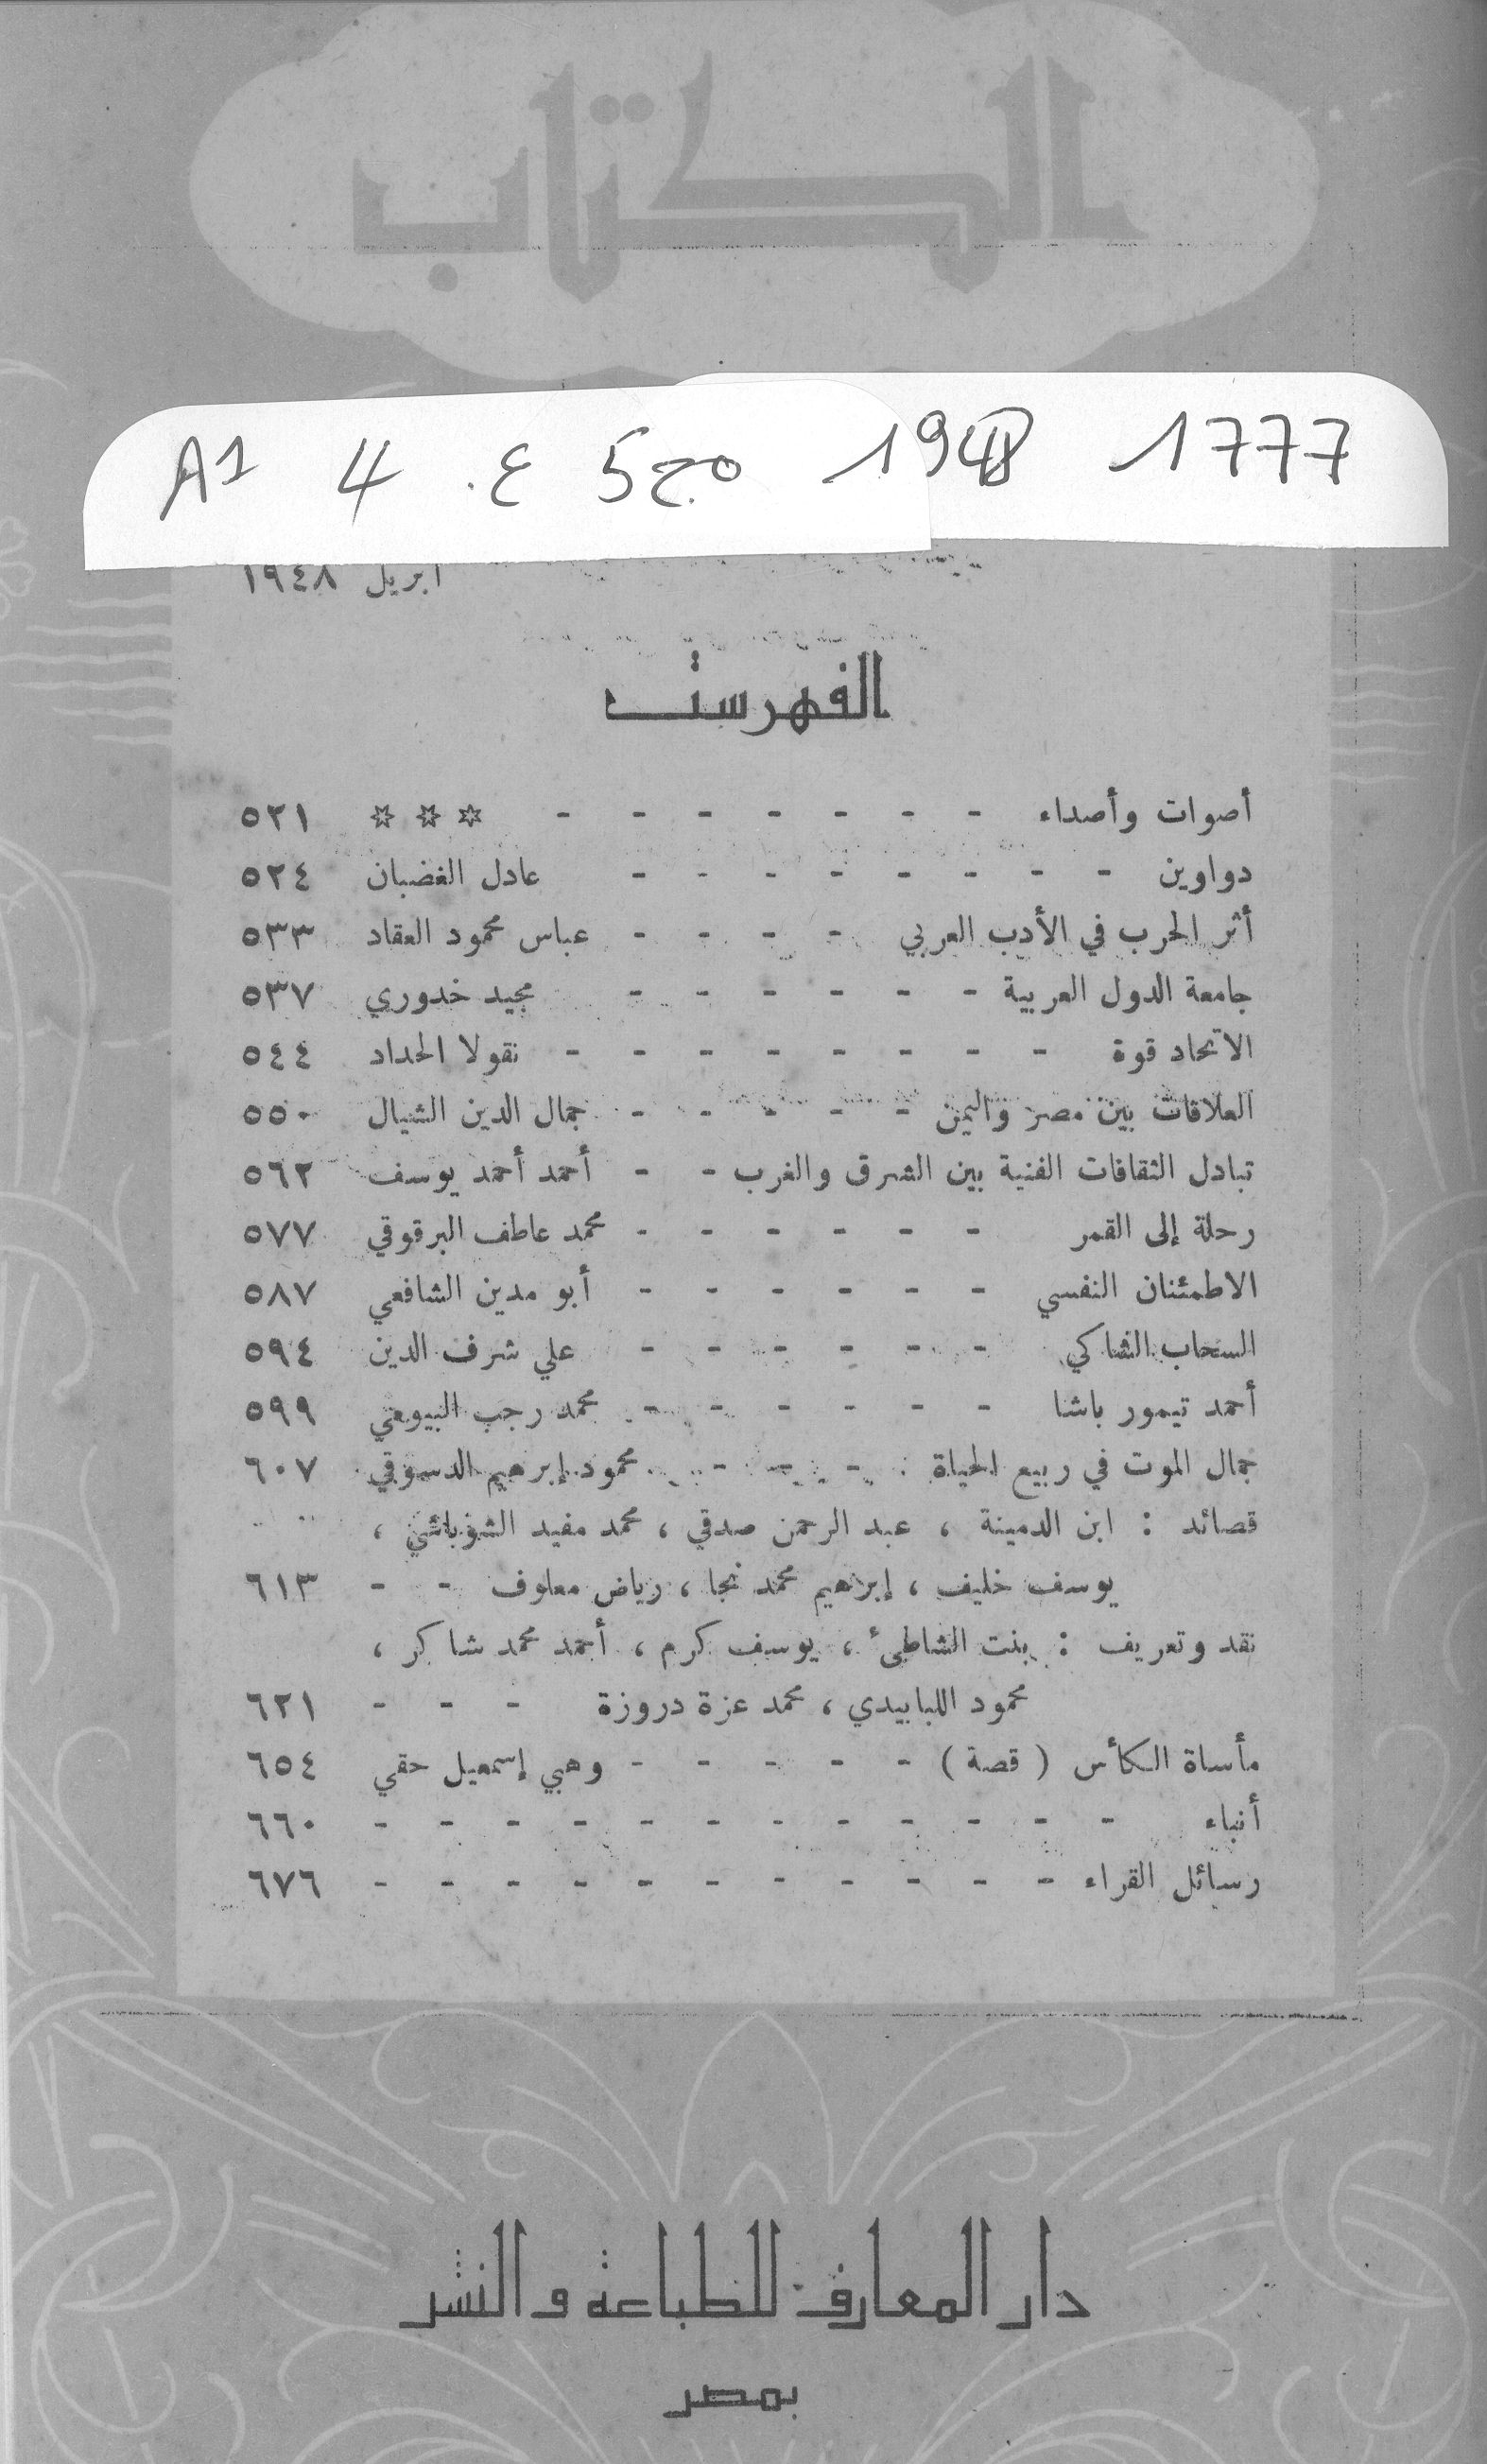 الكتاب
A1 4 ع. مج5 1948 1777
أبريل ١٩٤٨
الفهرست
أصوات وأصداء - - - - - - - *** ٥٢١
دواوين - - - - - - - - عادل الغضبان ٥٢٤
أثر الحرب في الأدب العربي - - - - عباس محمود العقاد ٥٣٣
جامعة الدول العربية - - - - - - مجيد خدوري ٥٣٧
الاتحاد قوة - - - - - - - - نقولا الحداد ٥٤٤
العلاقات بين مصر واليمن - - - - - جمال الدين الشيال ٥٥٠
تبادل الثقافات الفنية بين الشرق والغرب - - أحمد أحمد يوسف ٥٦٢
رحلة إلى القمر - - - - - - محمد عاطف البرقوقي ٥٧٧
الاطمئنان النفسي - - - - - - أبو مدين الشافعي ٥٨٧
السحاب الشاكي - - - - - - علي شرف الدين ٥٩٤
أحمد تيمور باشا - - - - - - محمد رجب البيومي ٥٩٩
جمال الموت في ربيع الحياة - - - محمود إبرهيم الدسوقي ٦٠٧
قصائد : ابن الدمينة ، عبد الرحمن صدقي ، محمد مفيد الشوباشي ،
يوسف خليف ، إبرهيم محمد نجا ، رياض معلوف - - ٦١٣
نقد وتعريف : بنت الشاطئ ، يوسف كرم ، أحمد محمد شاكر ،
محمود اللبابيدي ، محمد عزة دروزة - - - ٦٢١
مأساة الكأس ( قصة ) - - - - - وهبي إسمعيل حقي ٦٥٤
أنباء - - - - - - - - - - - - ٦٦٠
رسائل القراء - - - - - - - - - - - ٦٧٦
دار المعارف للطباعة والنشر
بمصر